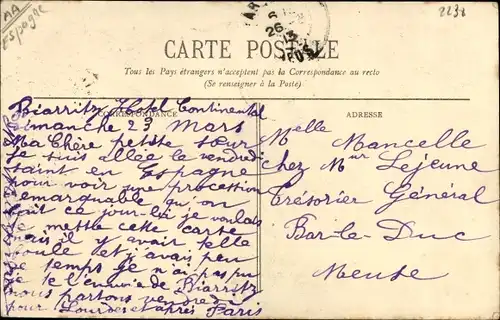 AA
Espagne
2238
CARTE POSTALE
Tous les Pays étrangers n'acceptent pas la Correspondance au recto
(Se renseigner à la Poste)
CORRESPONDANCE
Biarritz Hotel Continental
Dimanche 23 Mars
Ma Chère petite sœur
je suis allée le vendredi
saint en Espagne
pour voir une procession
remarquable qu'on
fait ce jour-là je voulais
te mettre cette carte
mais il y avait telle
foule et j'avais peu
de temps je n'ai pas pu
je te l'envoie de Biarritz
nous partons vendredi
pour Lourdes et après Paris
ADRESSE
Melle Mancelle
chez Mr Lejeune
Trésorier Général
Bar-le-Duc
Meuse